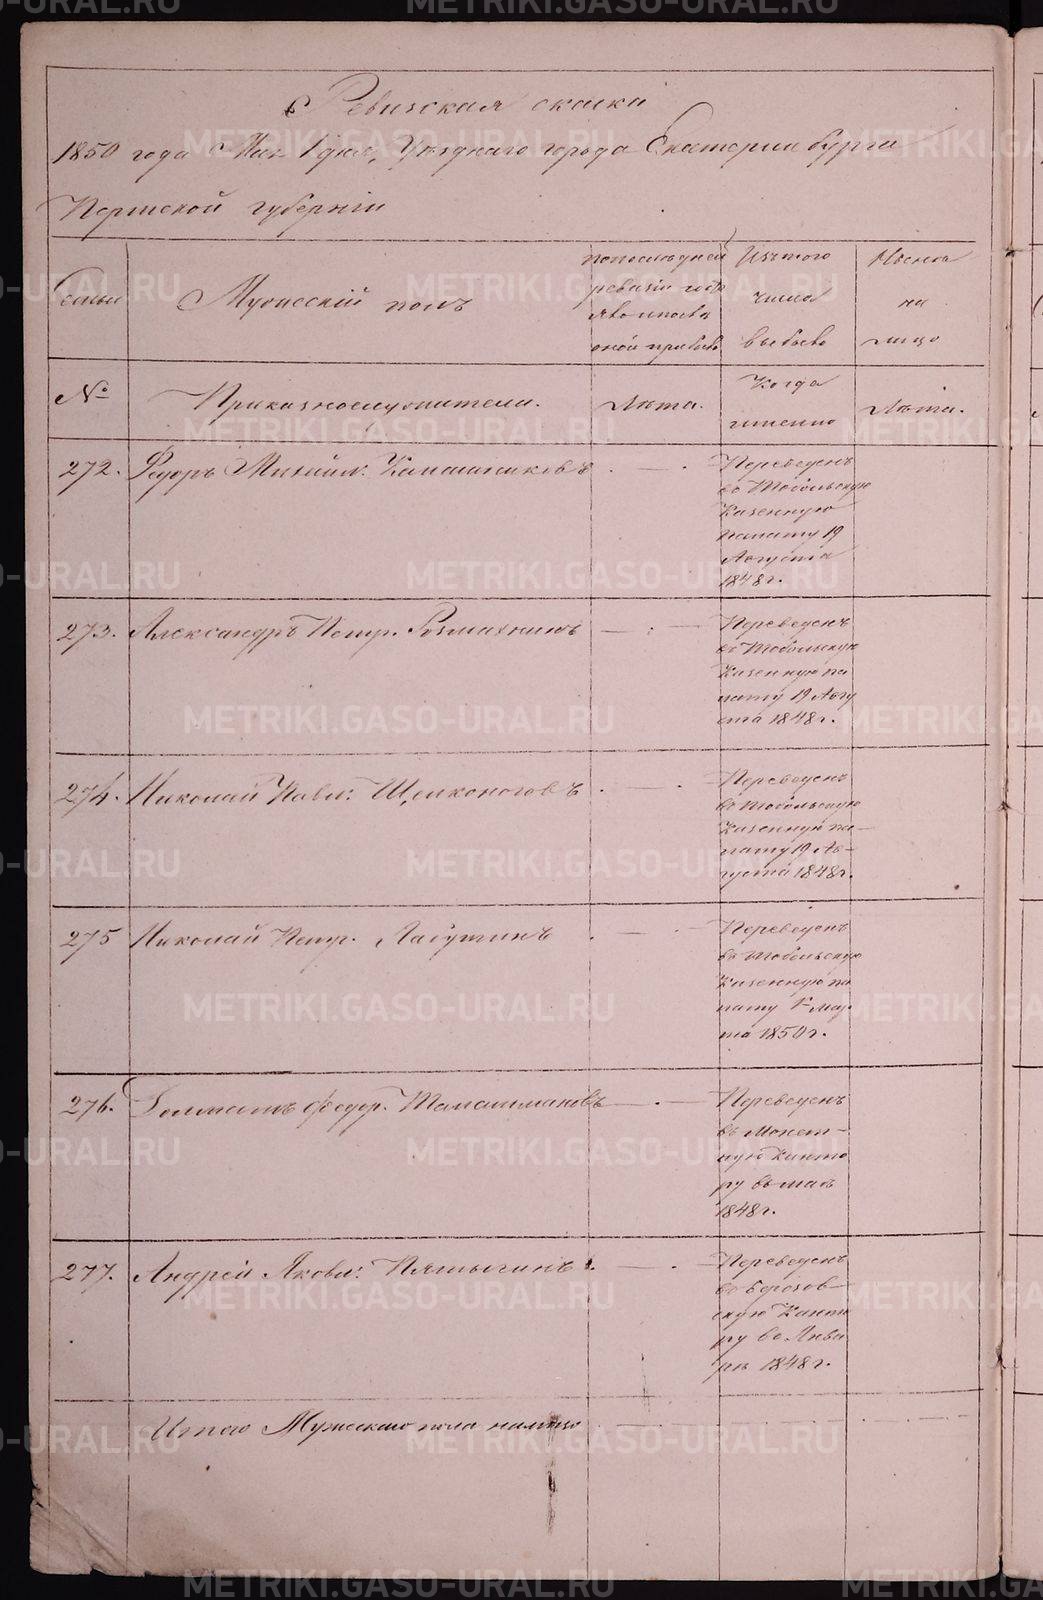 Ревизская сказка
1850 года Мая 1 дня, Уезднаго города Екатеринбурга
Пермской губернiи
Семьи
Мужескiй полъ
Изъ того
числа
выбыло
Ныне
на
лицо
№
Приказнослужители.
Лѣта.
Когда
именно
Лѣта.
272. Федоръ Михайл:
Переведенъ
въ Тобольскую
Казенную
палату 19
Августа
1848 г.
273. Александръ Петр.
Переведенъ
въ Тобольскую
Казенную па
лату 19 Авгу
ста 1848 г.
274. Николай Павл: Щелконоговъ
Переведенъ
въ Тобольскую
Казенную па-
лату 19 Ав-
густа 1848 г.
275 Николай Петр. Лагутинъ
Переведенъ
въ Тобольскую
Казенную па
лату 1 Мар
та 1850 г.
276. Федор.
Переведенъ
въ Монет-
ную Канто
ру въ маѣ
1848 г.
277. Андрей Яковл: Пятыгинъ
Переведенъ
въ Березов-
скую Канто
ру въ Янва
рѣ 1848 г.
Итого Мужескаго пола налицо
METRIKI.GASO-URAL.RU